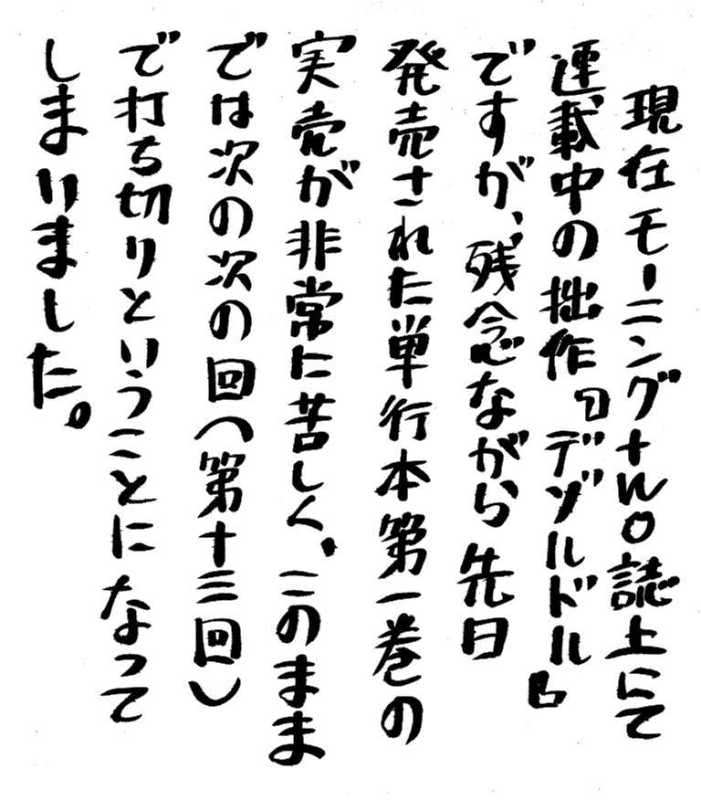 現在モーニング+TWO誌上にて
連載中の拙作『デゾルドル』
ですが、残念ながら先日
発売された単行本第一巻の
実売が非常に苦しく、このまま
では次の次の回(第十三回)
で打ち切りということになって
しまいました。